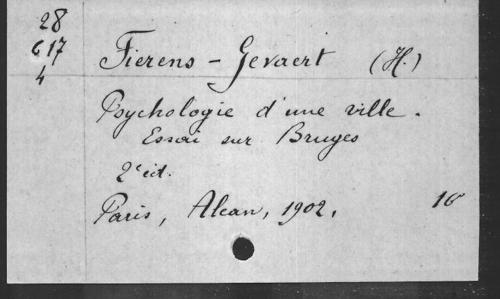 28
617
4
Fierens-Gevaert (H.)
Psychologie d'une ville.
Essai sur Bruges
2e éd.
Paris, Alcan, 1902.